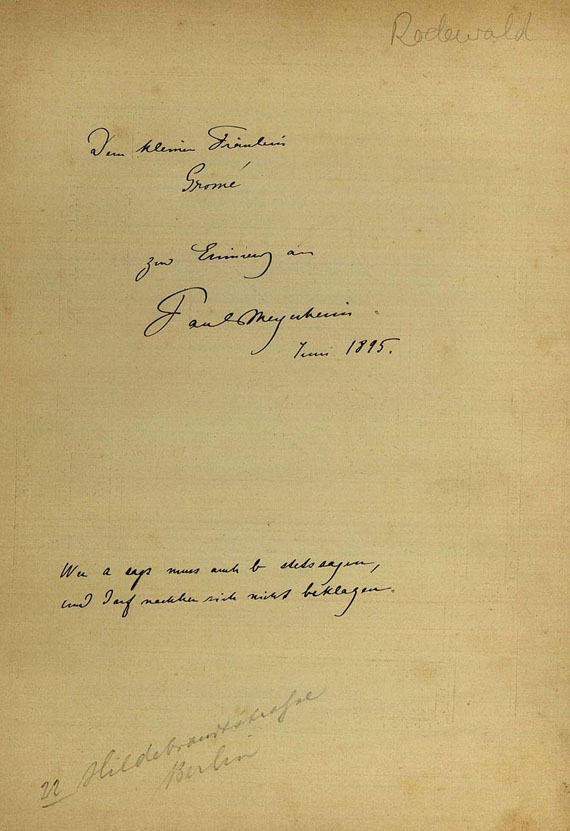 Rodewald
Dem kleinen Fräulein
Gromé
zur Erinnerung an
Paul Meyerheim.
Juni 1895.
Wer a sagt muss auch b stets sagen,
und darf nachher sich nicht beklagen.
22 Hildebrandtstrasse
Berlin